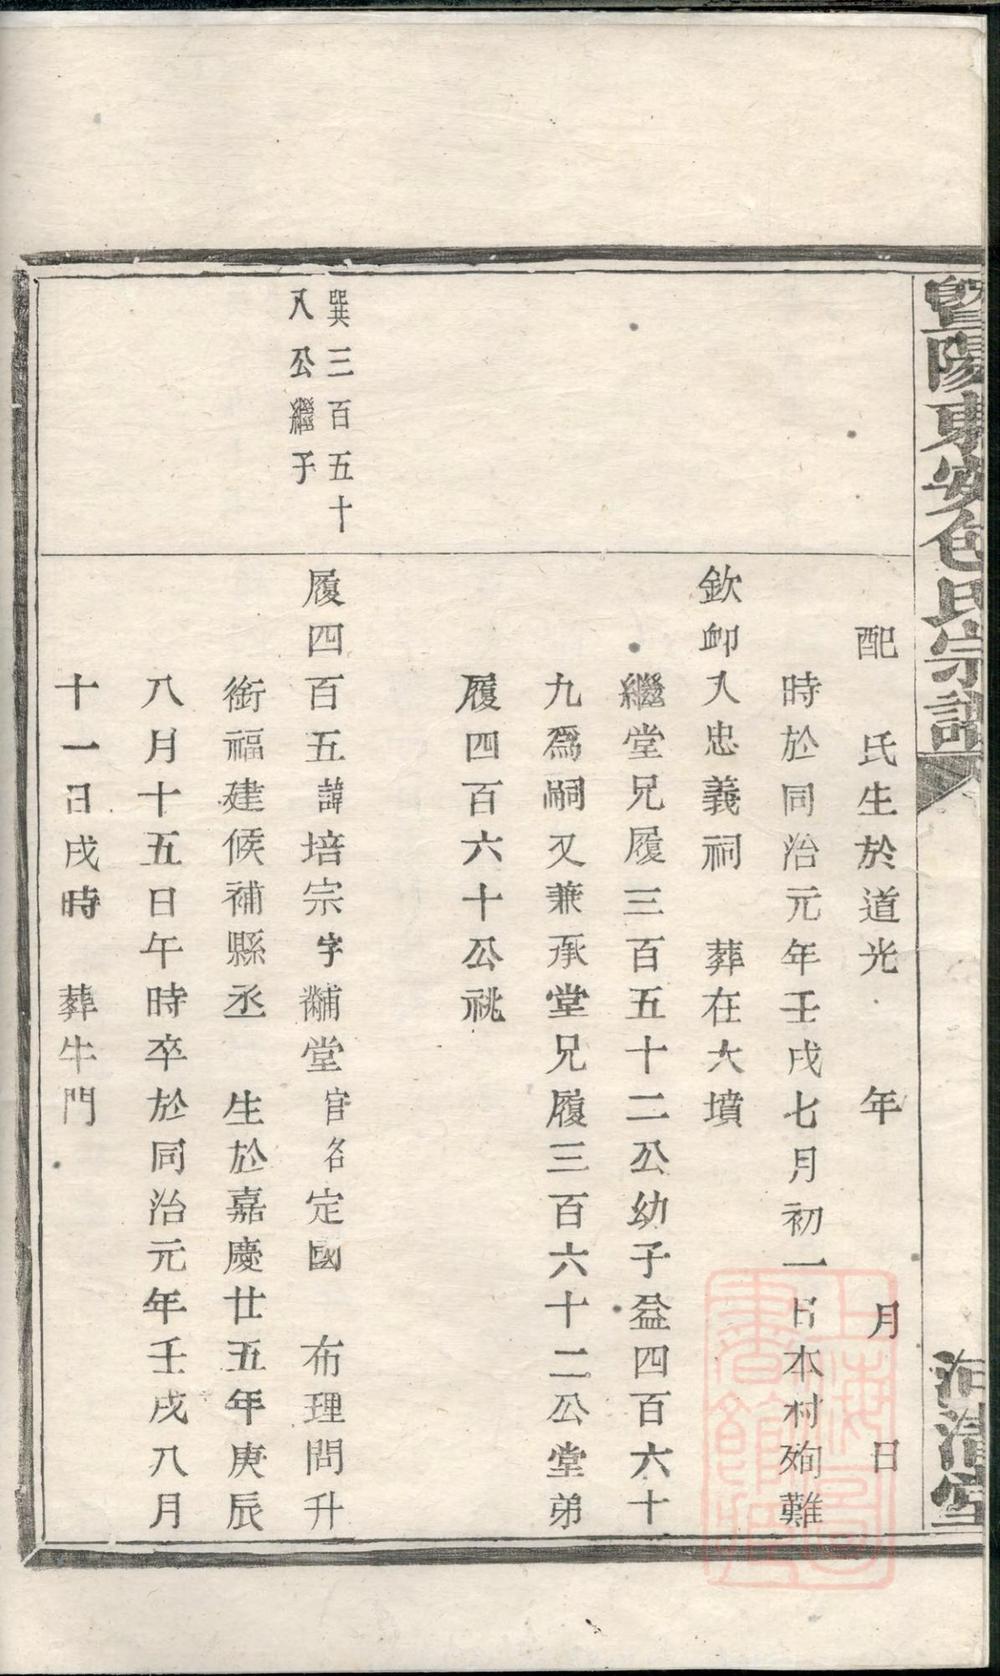 暨陽東安包氏宗譜
清堂
配 氏生於道光 年 月 日
時於同治元年壬戌七月初一日本村殉難
欽卹入忠義祠 葬在大墳
繼堂兄履三百五十二公幼子益四百六十
九爲嗣又兼承堂兄履三百六十二公堂弟
履四百六十公祧
巽三百五十
八公繼子
履四百五諱培宗字黼堂官名定國 布理問升
銜福建候補縣丞 生於嘉慶廿五年庚辰
八月十五日午時卒於同治元年壬戌八月
十一日戌時 葬牛門
上海圖書館藏